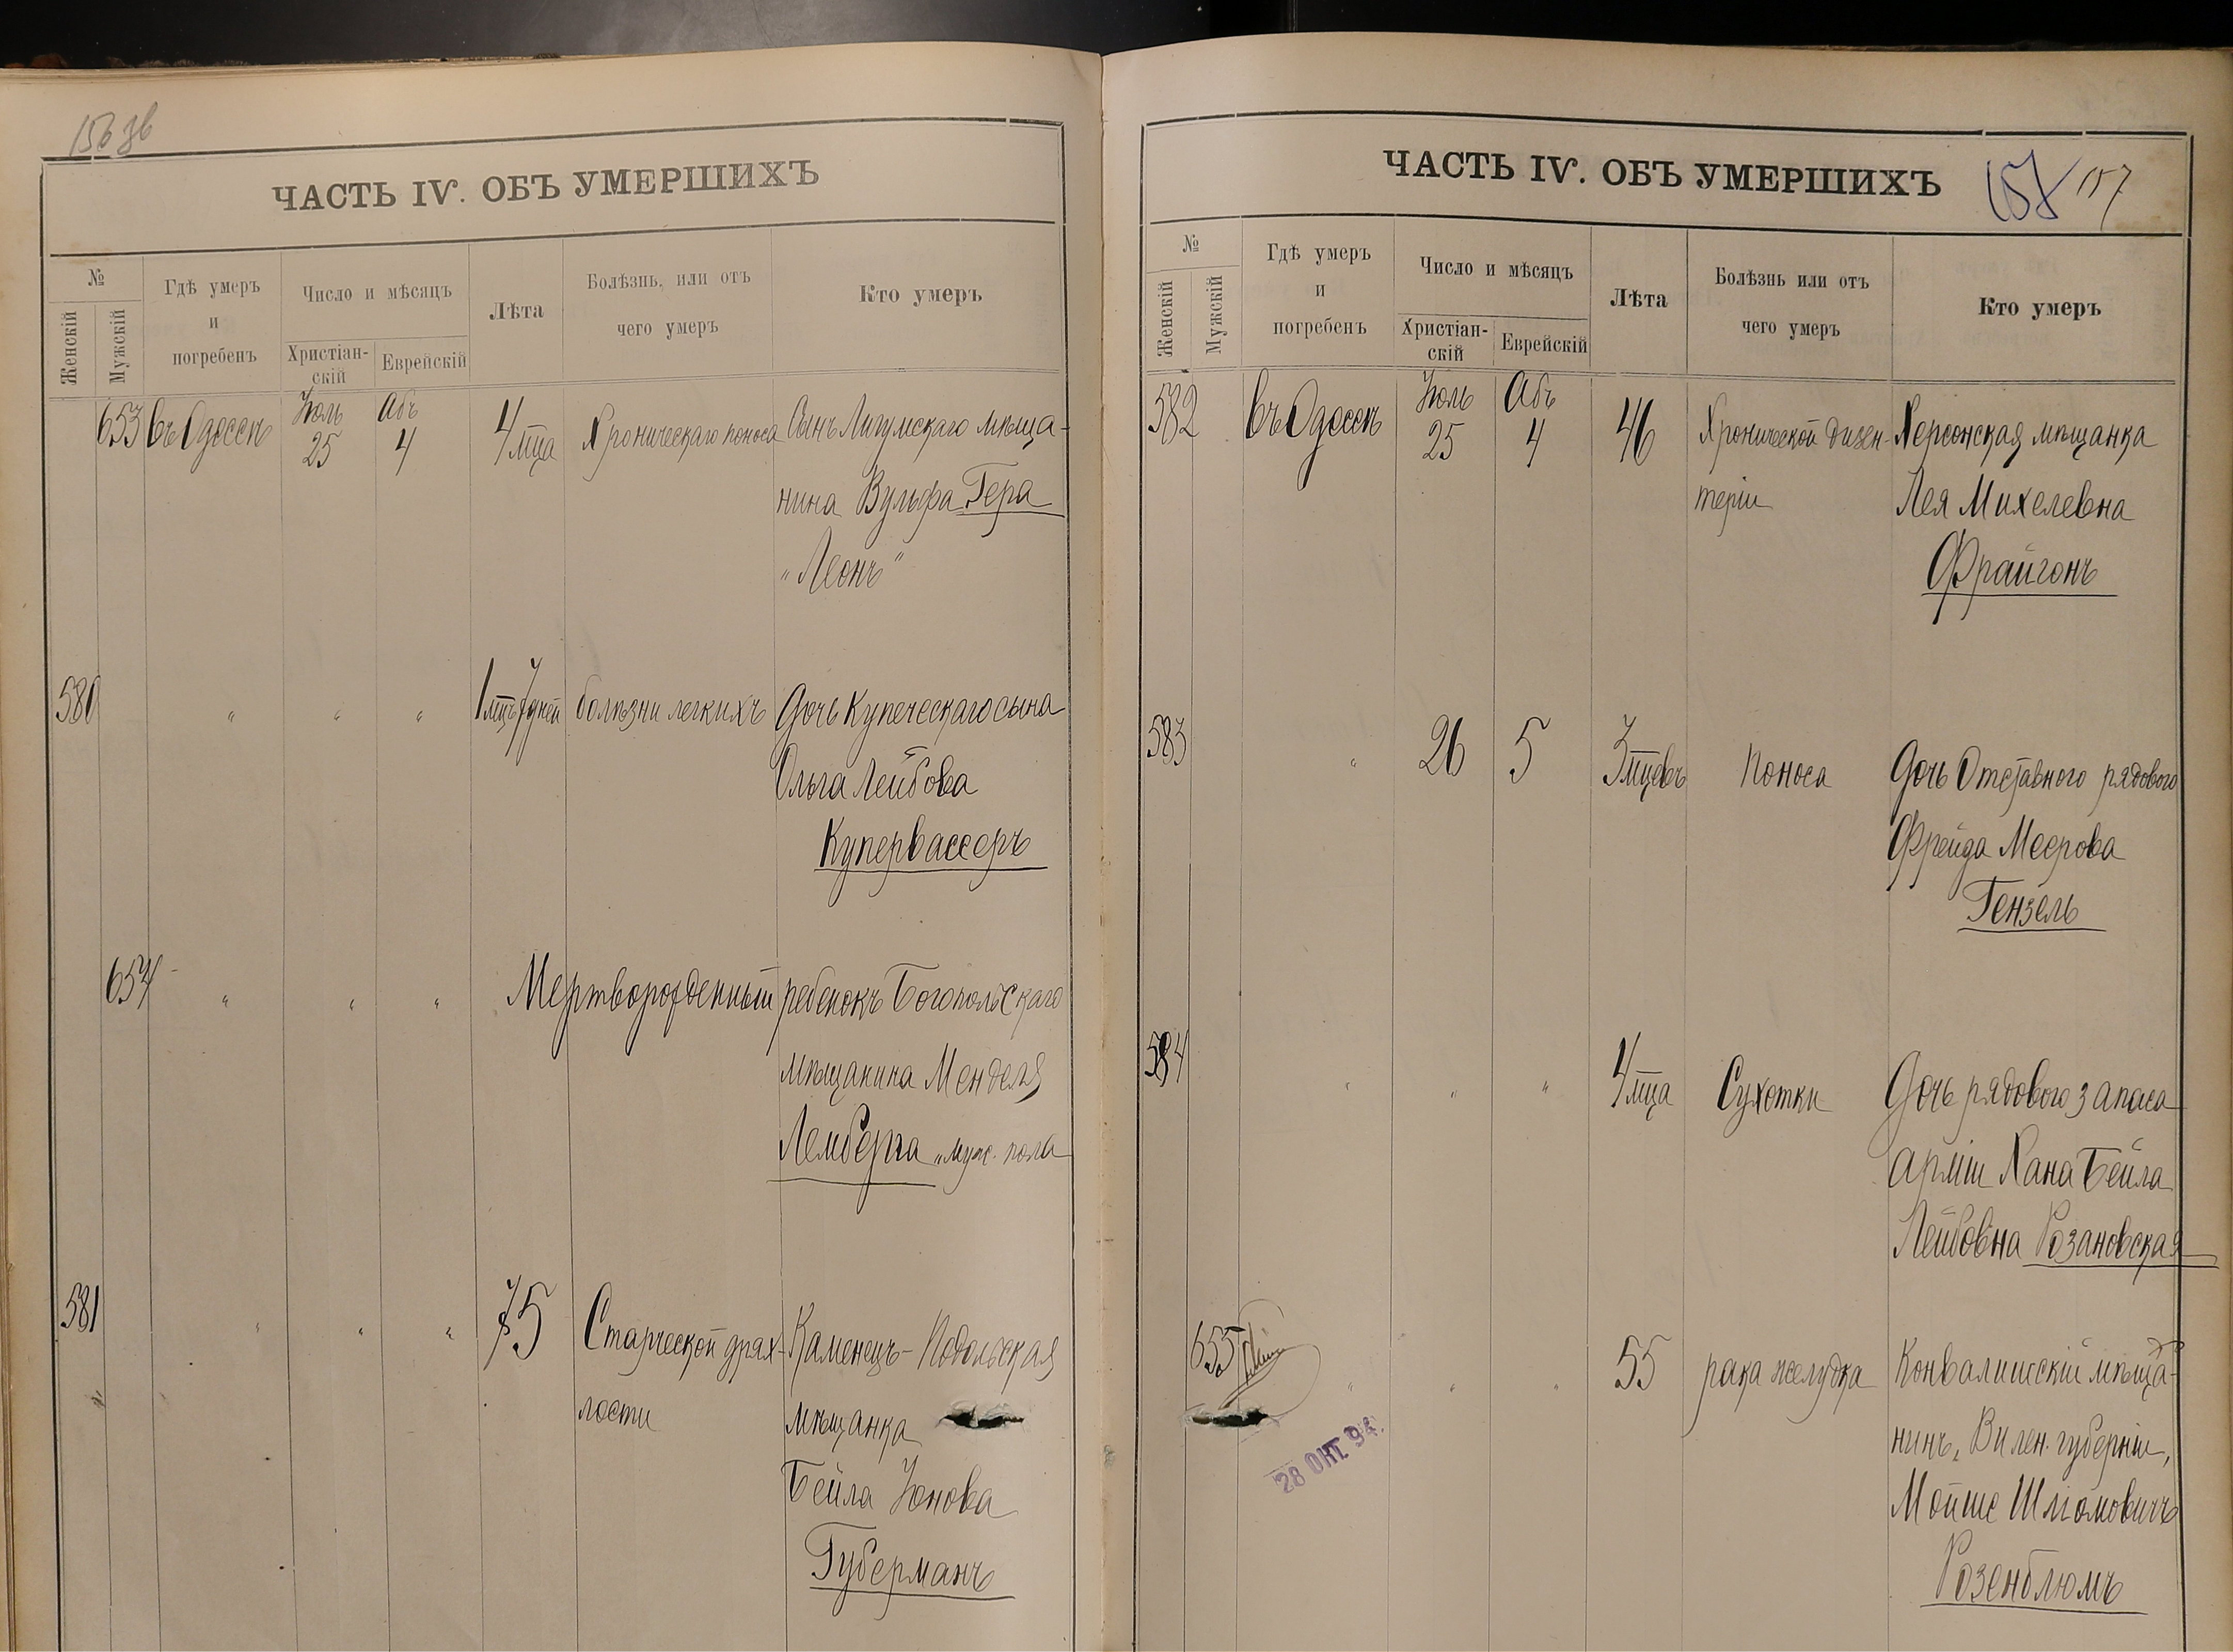 156 зв
ЧАСТЬ IV. ОБЪ УМЕРШИХЪ
№
Женскій
Мужскій
Гдѣ умеръ
и
погребенъ
Число и мѣсяцъ
Христіан-
скій
Еврейскій
Лѣта
Болѣзнь, или отъ
чего умеръ
Кто умеръ
653 въ Одессѣ Іюль 25 Абъ 4 4 мца Хроническаго поноса Сынъ Лигумскаго мѣща-
нина Вульфа Гера
"Леонъ"
580 " " " 1 мцъ 7 дней болѣзни легкихъ Дочь Купеческаго сына
Ольга Лейбова
Купервассеръ
654 " " " Мертворожденный ребенокъ Богопольскаго
мѣщанина Менделя
Лемберга "муж. пола
581 " " " 75 Старческой дрях- Каменецъ-Подольская
лости мѣщанка
Бейла Іонова
Губерманъ
ЧАСТЬ IV. ОБЪ УМЕРШИХЪ 157
№
Женскій
Мужскій
Гдѣ умеръ
и
погребенъ
Число и мѣсяцъ
Христіан-
скій
Еврейскій
Лѣта
Болѣзнь или отъ
чего умеръ
Кто умеръ
582 въ Одессѣ Іюль 25 Абъ 4 46 Хронической дизен- Херсонская мѣщанка
теріи Лея Михелевна
Фрайгонъ
583 " 26 5 3 мцевъ Поноса Дочь Отставного рядового
Фрейда Меерова
Гензель
584 " " " 4 мца Сухотки Дочь рядового запаса
арміи Хана Бейла
Лейбовна Розановская
655 " " " 55 рака желудка Конвалишскій мѣща-
нинъ, Вилен. губерніи,
Мойше Шломовичъ
Розенблюмъ
28 ОКТ. 94.